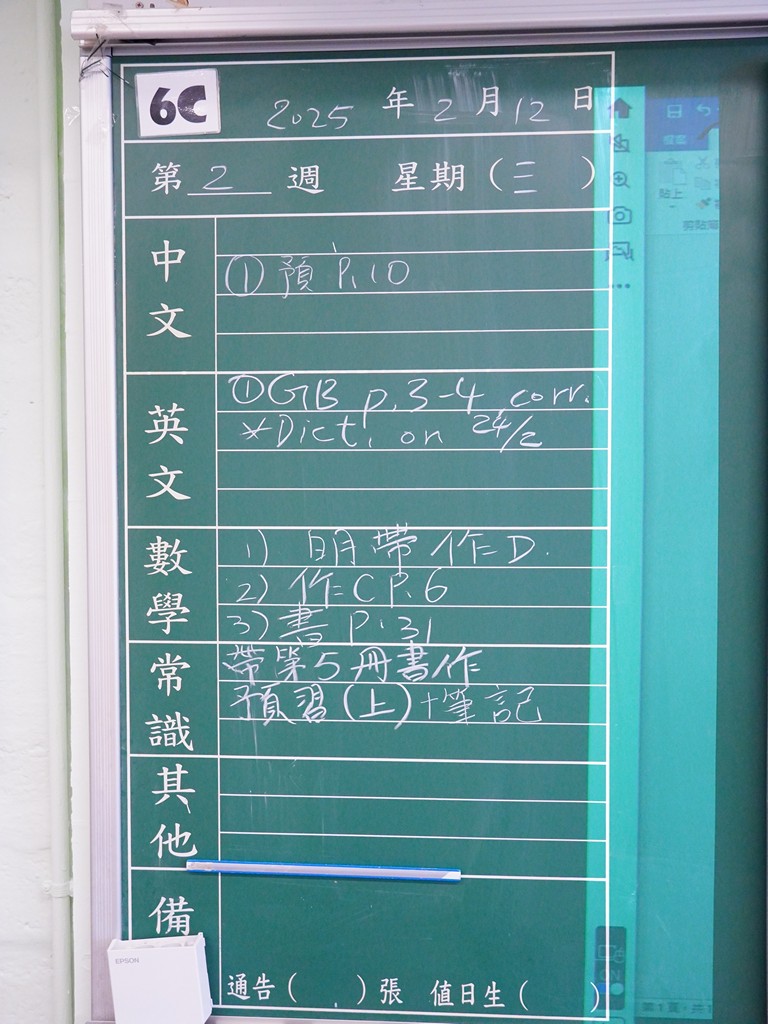 6C 2025 年 2 月 12 日
第 2 週 星期 (三)
中文
① 預 P.10
英文
① GB p.3-4 corr.
*Dict. on 24/2
數學
1) 明帶作D.
2) 作C P.6
3) 書 P.31
常識
帶第5冊書作
預習(上)+筆記
其他
備
通告( )張 值日生( )
EPSON
檔案
貼上
剪貼簿